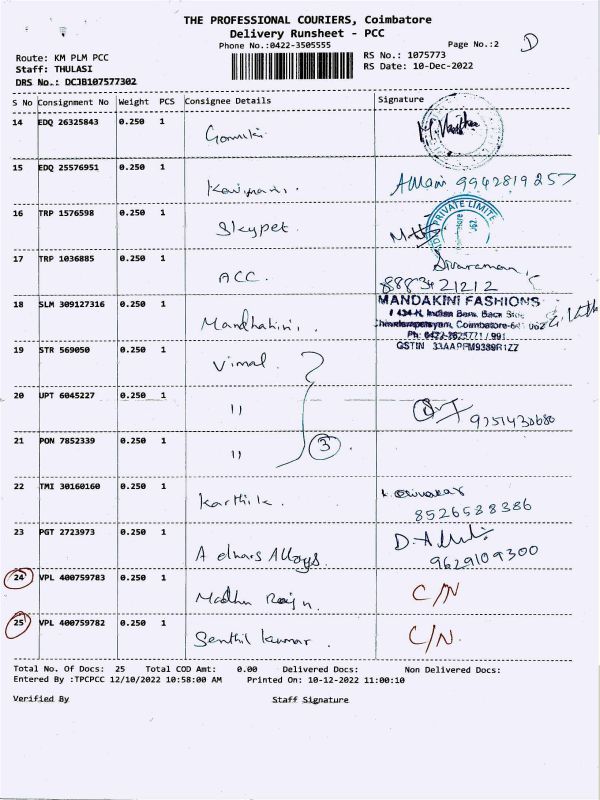 THE PROFESSIONAL COURIERS, Coimbatore
Delivery Runsheet - PCC
Phone No.:0422-3505555
Page No.:2
D
Route: KM PLM PCC
Staff: THULASI
DRS No.: DCJB107577302
RS No.: 1075773
RS Date: 10-Dec-2022
S No Consignment No Weight PCS Consignee Details Signature
14 EDQ 26325843 0.250 1
15 EDQ 25576951 0.250 1
9942819257
16 TRP 1576598 0.250 1 Skypet.
PRIVATE LIMITE
17 TRP 1036885 0.250 1 ACC. Sivaraman
8883421212
18 SLM 309127316 0.250 1 Mandhakini.
MANDAKINI FASHIONS
Indian Bank Back Side
Coimbatore-641 062
GSTIN 33AAPFM9389R1Z7
19 STR 569050 0.250 1 Vimal.
20 UPT 6045227 0.250 1 11
21 PON 7852339 0.250 1 11 3
22 TMI 30160160 0.250 1 Karthik.
8526588386
23 PGT 2723973 0.250 1 Alloys.
9629109300
24 VPL 400759783 0.250 1 Madhu C/N
25 VPL 400759782 0.250 1 Senthil kumar. C/N.
Total No. Of Docs: 25 Total COD Amt: 0.00 Delivered Docs: Non Delivered Docs:
Entered By :TPCPCC 12/10/2022 10:58:00 AM Printed On: 10-12-2022 11:00:10
Verified By Staff Signature